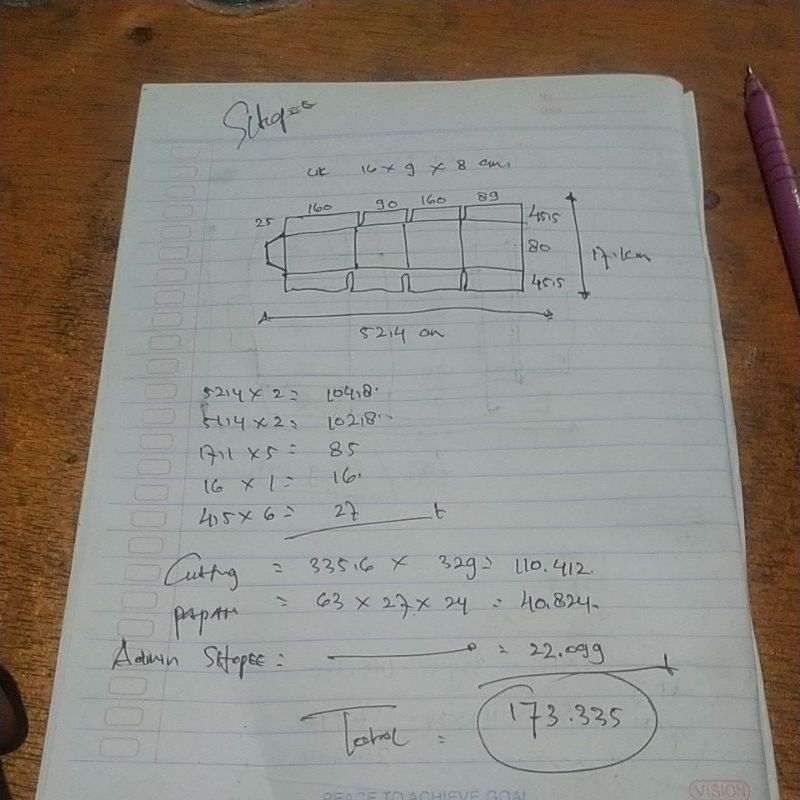 Shopee
UK 16 x 9 x 8 cm
160 90 160 89
25
45,5
80
17,1 cm
45,5
52,4 cm
52,4 x 2 = 104,8
51,4 x 2 = 102,8
17,1 x 5 = 85
16 x 1 = 16
4,5 x 6 = 27 +
Cutting = 335,6 x 329 = 110.412
PAPAN = 63 x 27 x 24 = 40.824
Admin SHOPEE: = 22.099 +
Total = 173.335
PEACE TO ACHIEVE GOAL
VISION